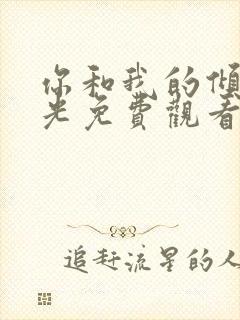 你和我的傾
光免費觀看
追赶流星的人